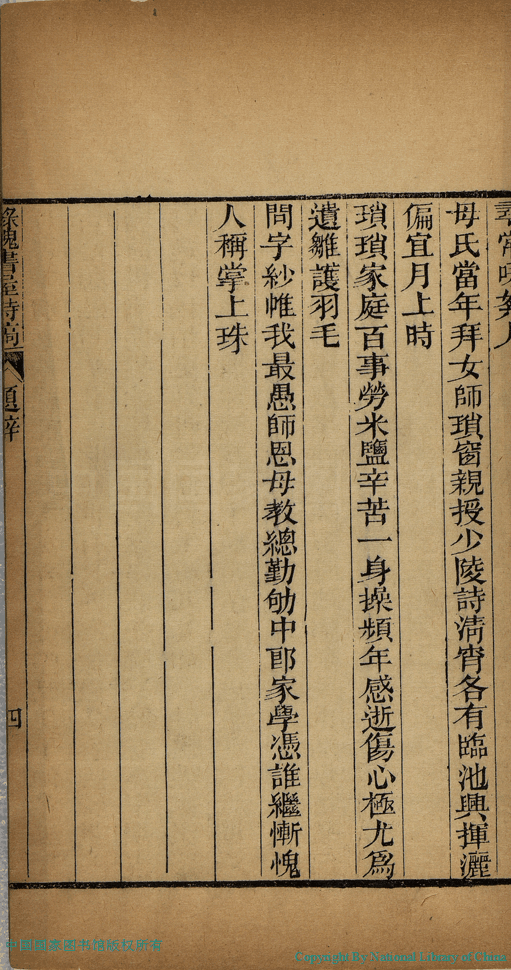 尋常咏絮人
母氏當年拜女師瑣窗親授少陵詩淸宵各有臨池興揮灑
偏宜月上時
瑣瑣家庭百事勞米鹽辛苦一身操頻年感逝傷心極尤爲
遺雛護羽毛
問字紗帷我最愚師恩母教總勤劬中郎家學憑誰繼慚愧
人稱掌上珠
題辭
四
中国国家图书馆版权所有
Copyright By National Library of China